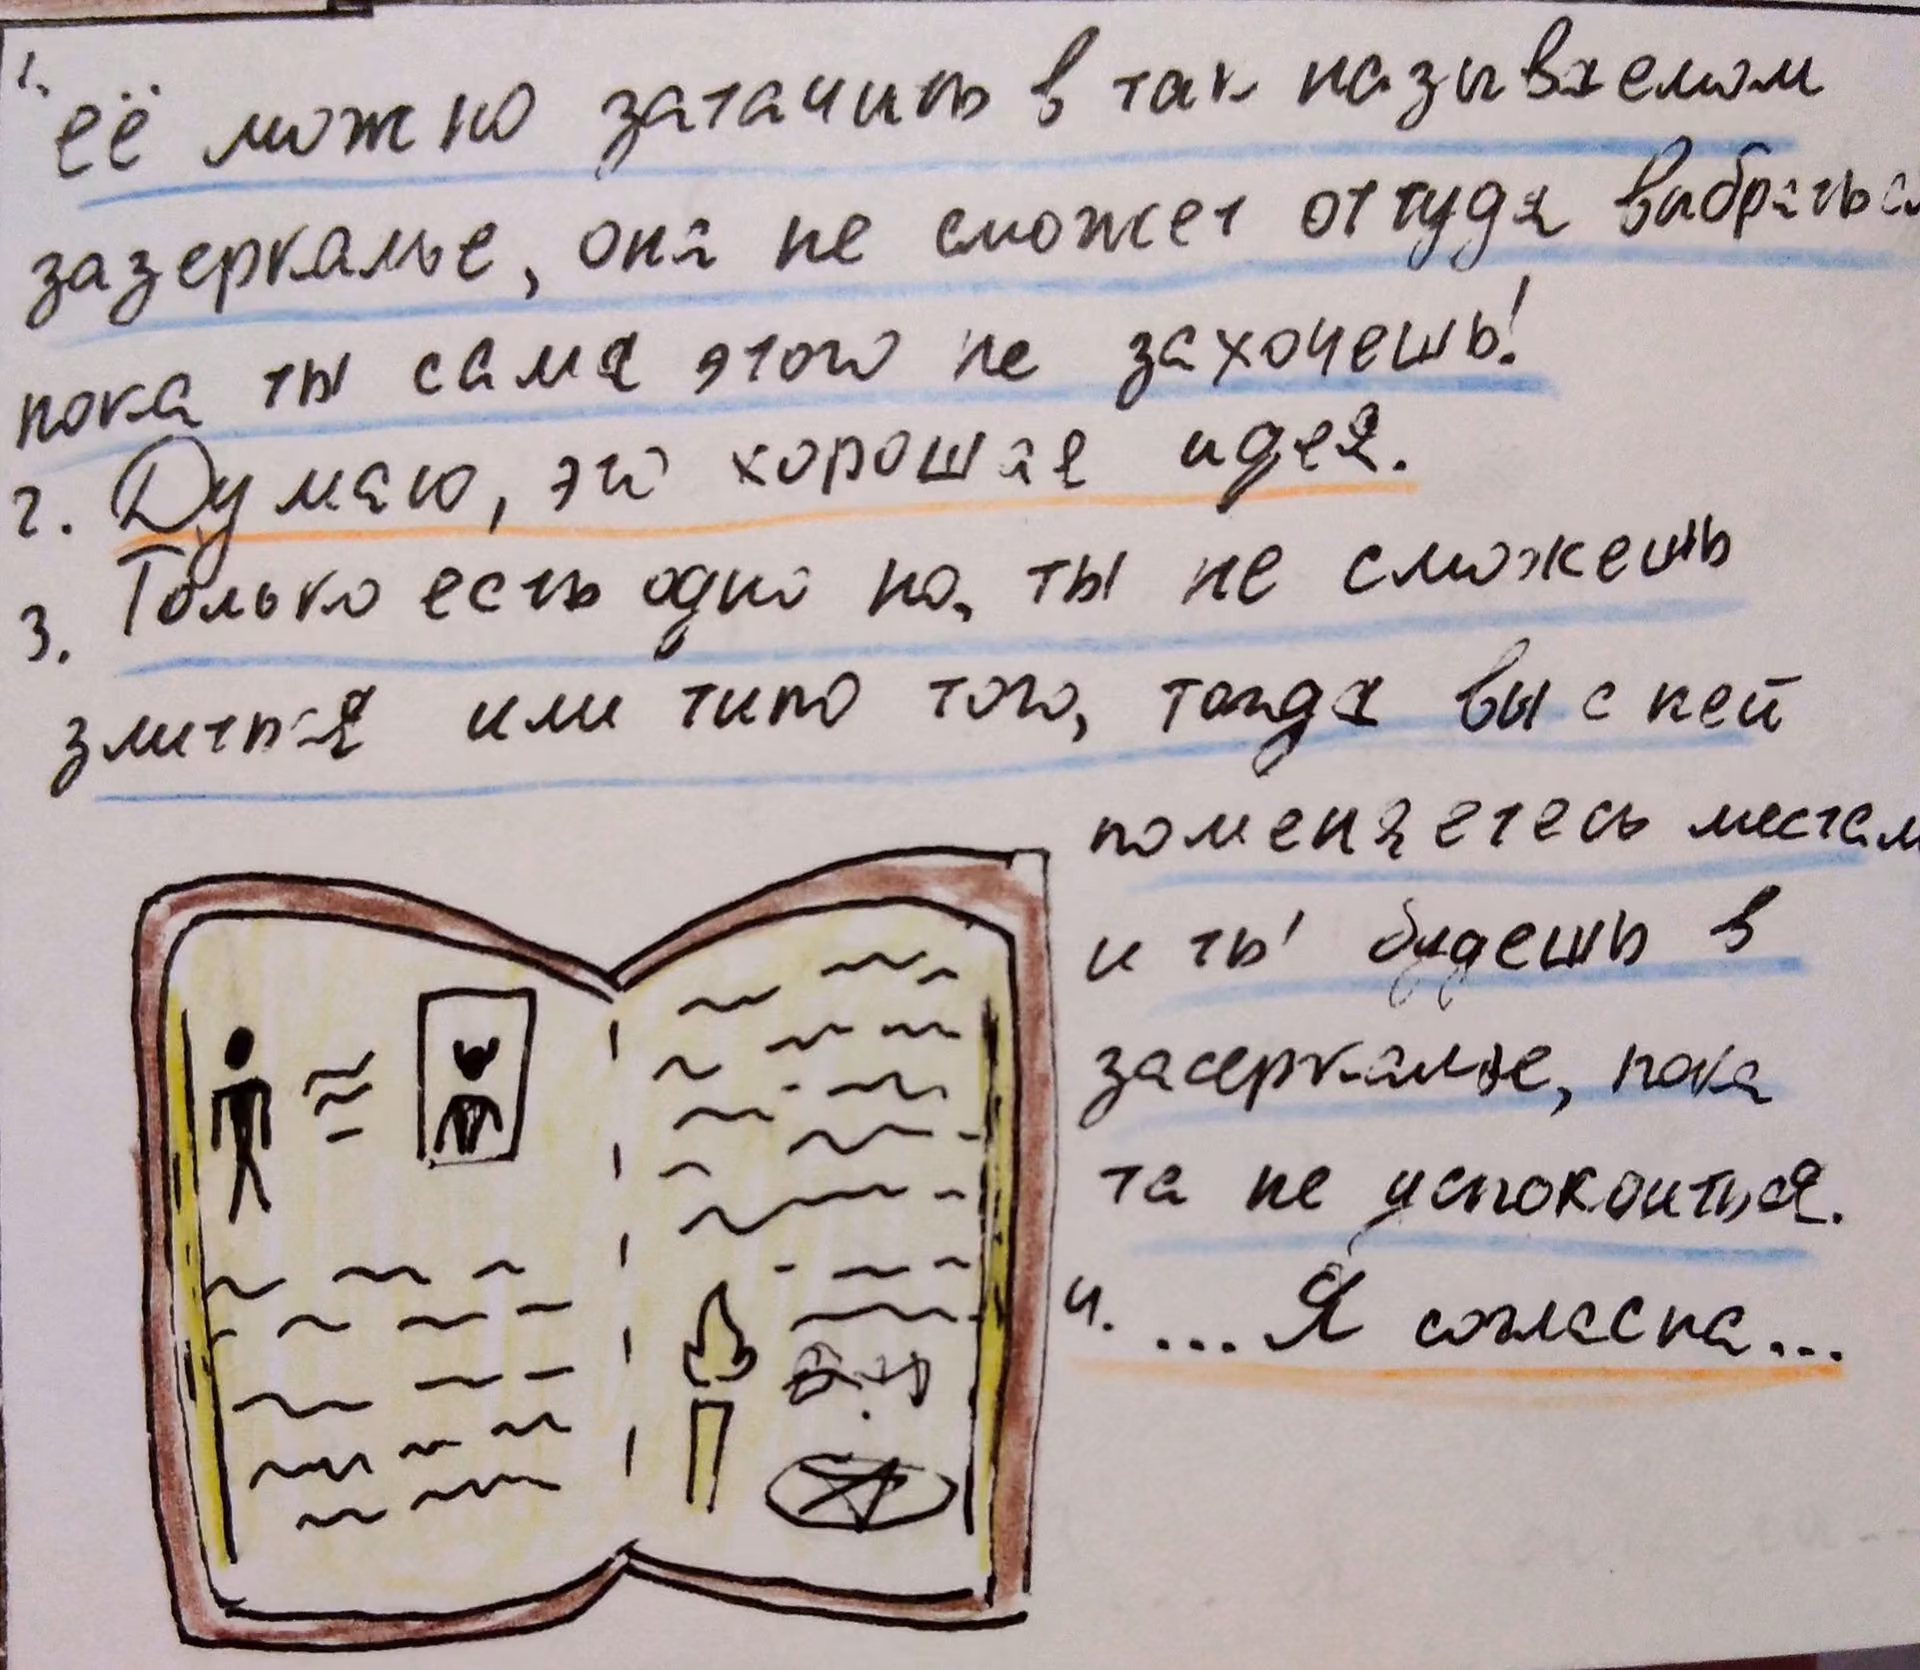 1. её можно затачить в так называемом
зазеркалье, она не сможет оттуда выбраться
пока ты сама этого не захочешь!
2. Думаю, это хорошае идея.
3. Только есть одно но, ты не сможешь
злиться или типо того, тогда вы с ней
поменяетесь местам
и ты будешь в
засеркалье, пока
та не успокоиться.
4. ...Я согласна...